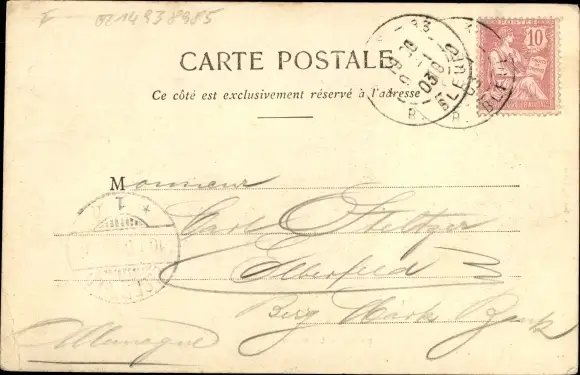 F ot 14938985
10
CARTE POSTALE
Ce côté est exclusivement réservé à l'adresse
03
Monsieur
Carl Steltzer
Elberfeld
Berg Märk Bank
Allemagne